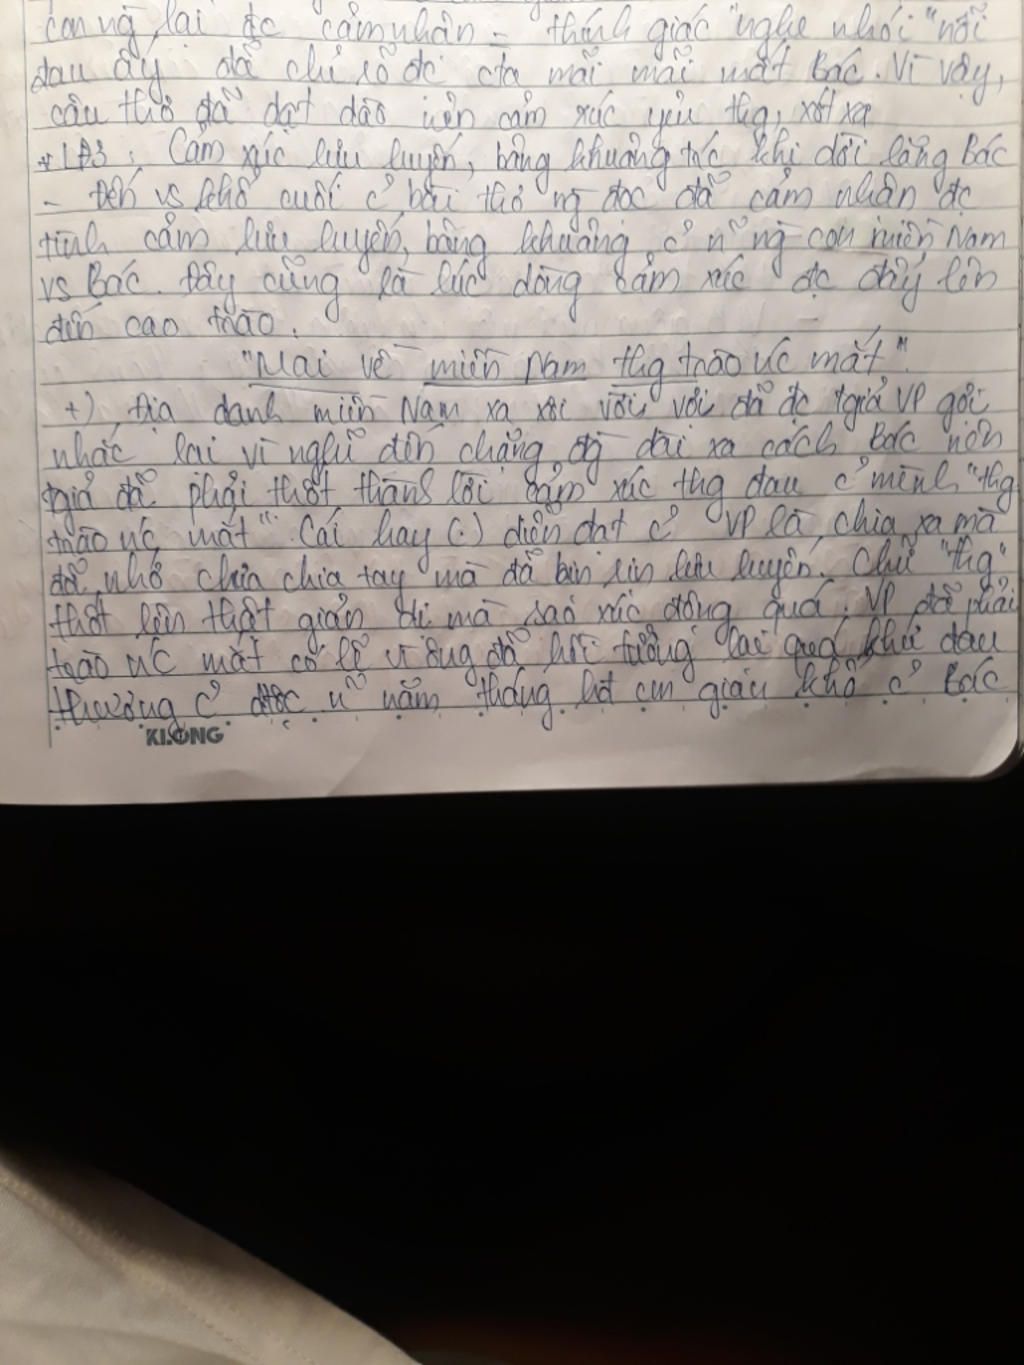 con ng lại đc cảm nhận = thính giác "nghe nhói" nỗi
đau ấy đã chỉ rõ đc cta mãi mãi mất Bác. Vì vậy,
câu thơ đã dạt dào cảm xúc yêu thg, xót xa
* LĐ3: Cảm xúc lưu luyến, bâng khuâng trc khi dời lăng Bác
- Đến vs khổ cuối c̉ bài thơ ng đọc đã cảm nhận đc
tình cảm lưu luyến, bâng khuâng c̉ n~ ng con miền Nam
vs Bác. Đây cũng là lúc dòng cảm xúc đc đẩy lên
đến cao trào.
"Mai về miền Nam thg trào nc mắt"
+) Địa danh miền Nam xa xôi vời vợi đã đc tgiả VP gợi
nhắc lại vì nghĩ đến chặng đg dài xa cách Bác nên
tgiả đã phải thốt thành lời cảm xúc thg đau c̉ mình "thg
trào nc mắt". Cái hay (.) diễn đạt c̉ VP là, chia xa mà
đã nhớ chưa chia tay mà đã bịn rịn lưu luyến. Chữ "thg"
thốt lên thật giản dị mà sao xúc động quá. VP đã phải
trào nc mắt có lẽ vì ông đã hồi tưởng lại quá khứ đau
thương c̉ n~ năm tháng gian khổ c̉ Bác
KLONG